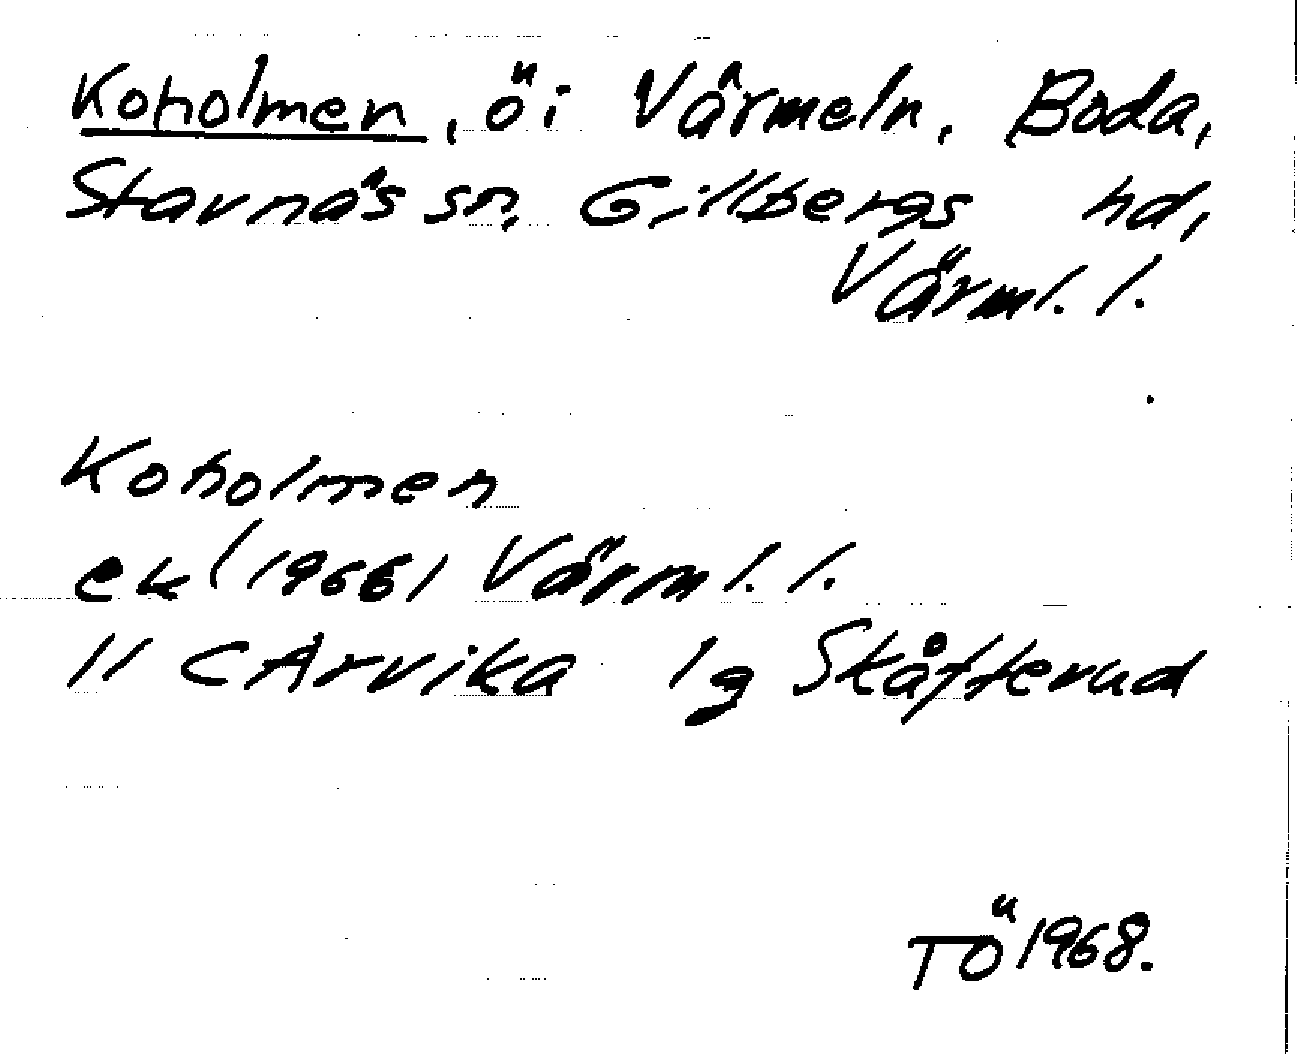 Koholmen, ö i Värmeln, Boda,
Stavnäs sn, Gillbergs hd,
Värml. l.
Koholmen
ek (1966) Värml. l.
11 C Arvika 1g Skåfterud
TÖ 1968.